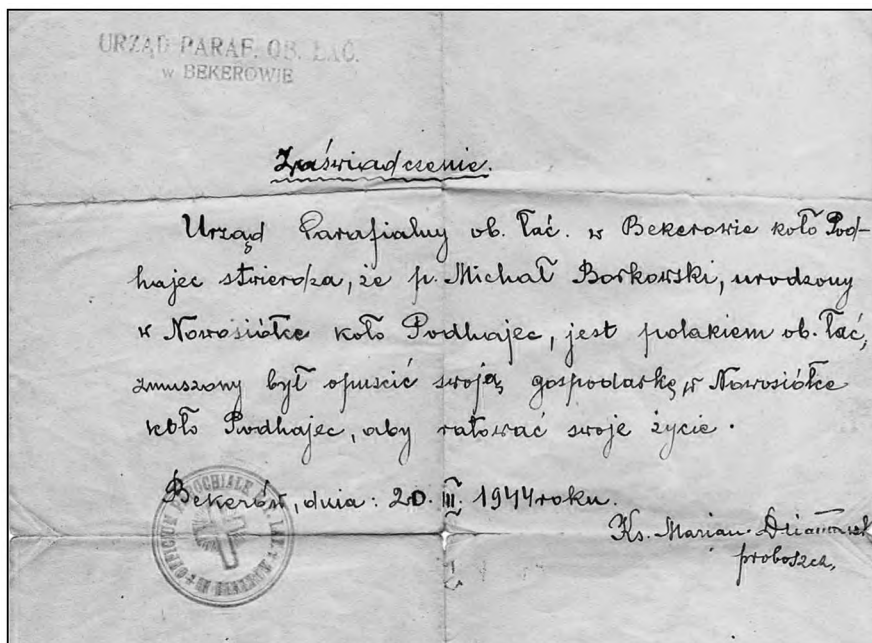 URZĄD PARAF. OB. ŁAC.
w BEKEROWIE
Zaświadczenie.
Urząd Parafialny ob. łać. w Bekerowie koło Pod-
hajec stwierdza, że p. Michał Borkowski, urodzony
w Nowosiółce koło Podhajec, jest polakiem ob. łać,
zmuszony był opuścić swoją gospodarkę w Nowosiółce
koło Podhajec, aby ratować swoje życie.
Bekerów, dnia: 20. III 1944 roku.
Ks. Marian
proboszcz,
OFFICIUM PAROCHIALE